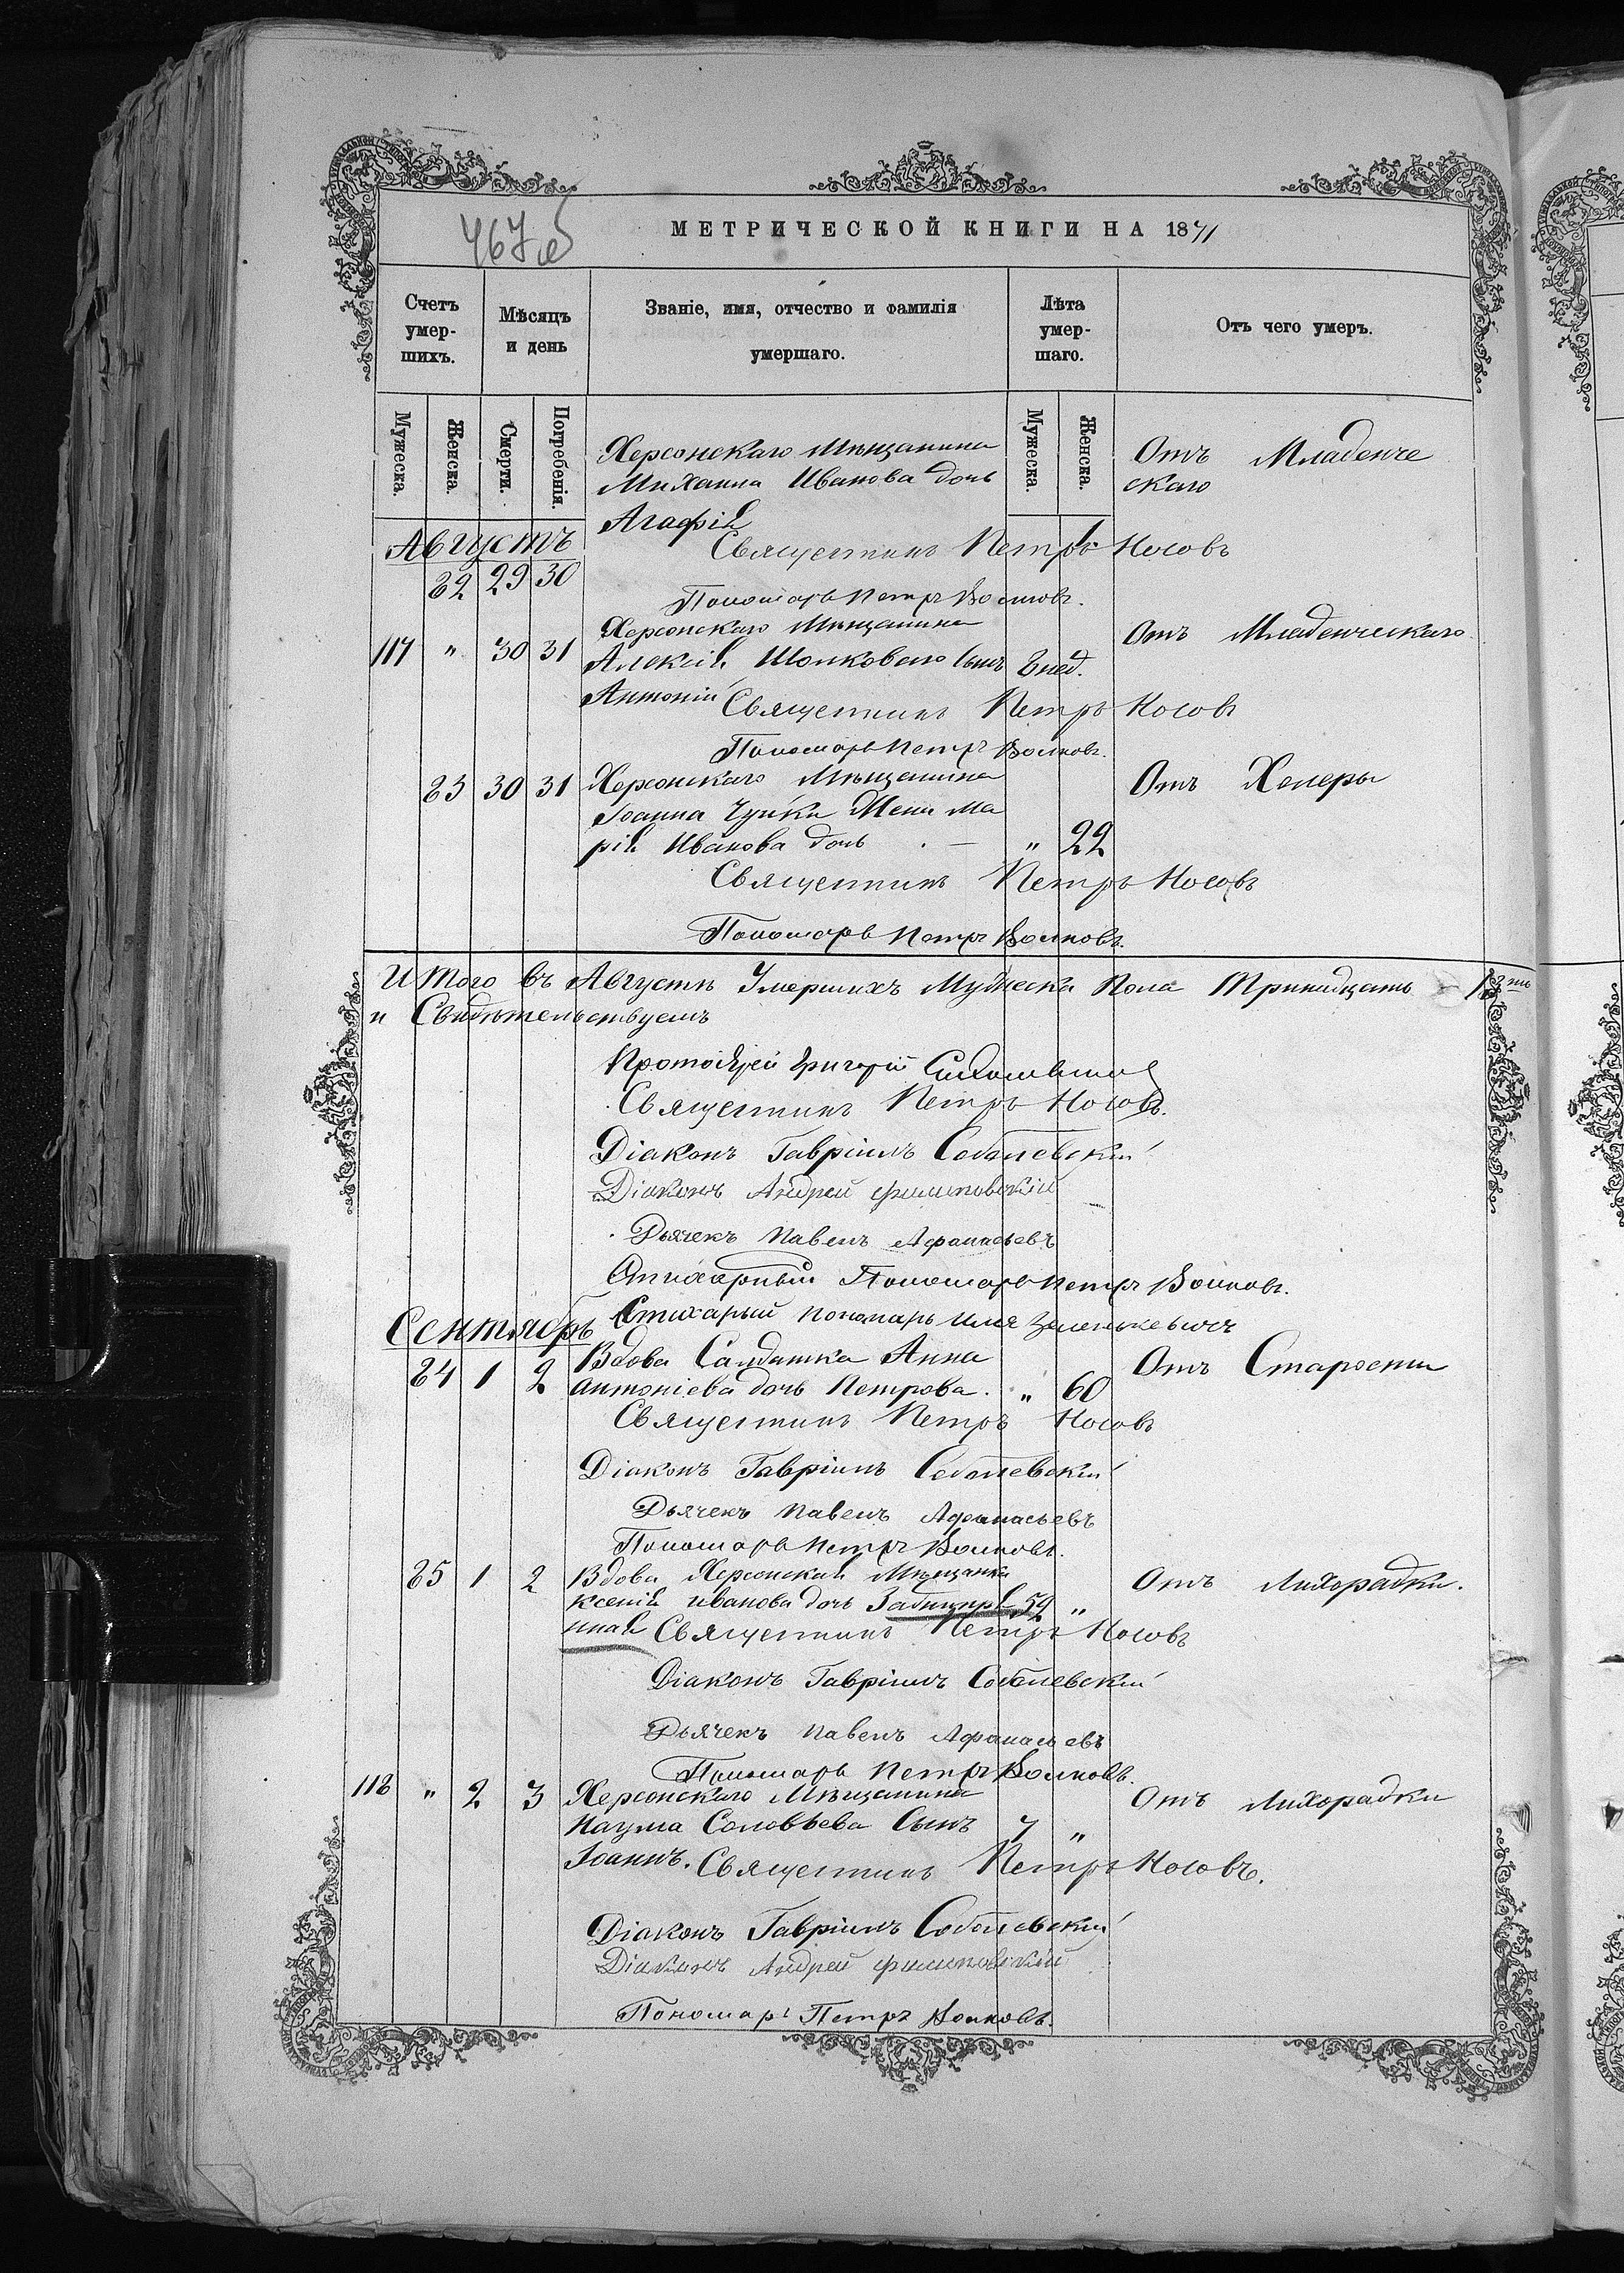 467 об
МЕТРИЧЕСКОЙ КНИГИ НА 1871
Счетъ умер-шихъ.
Мѣсяцъ и день
Званіе, имя, отчество и фамилія умершаго.
Лѣта умер-шаго.
Отъ чего умеръ.
Мужеска. Женска. Смерти. Погребенія. Мужеска. Женска.
Херсонскаго Мѣщанина Отъ Младенче
Михаила Иванова дочь скаго
Агафія
Августъ
Священникъ Петръ Носовъ
82 29 30
Пономарь Петръ Волковъ.
Херсонскаго Мѣщанина Отъ Младенческаго
117 " 30 31 Алексія Шолковаго сынъ 3 нед.
Антоній Священникъ Петръ Носовъ
Пономарь Петръ Волковъ.
83 30 31 Херсонскаго Мѣщанина Отъ Холеры
Іоанна Чуйки Жена Ма
рія Иванова дочь " 22
Священникъ Петръ Носовъ
Пономарь Петръ Волковъ.
Итого въ Августѣ Умершихъ Мужеска Пола Тринадцать 13ть
и Свидѣтельствуемъ
Протоіерей Григорій
Священникъ Петръ Носовъ.
Діаконъ Гавріилъ Соболевскій
Діаконъ Андрей Филиповскій
Дьячекъ Павелъ Афанасьевъ
Стихарный Пономарь Петръ Волковъ.
Стихарый пономарь Илія Зеленькевичъ
Сентябрь
Вдова Салдатка Анна Отъ Старости
84 1 2 Антоніева дочь Петрова. " 60
Священникъ Петръ Носовъ
Діаконъ Гавріилъ Соболевскій
Дьячекъ Павелъ Афанасьевъ
Пономарь Петръ Волковъ.
85 1 2 Вдова Херсонская Мѣщанка Отъ Лихорадки.
Ксенія Иванова дочь 52 "
Священникъ Петръ Носовъ
Діаконъ Гавріилъ Соболевскій
Дьячекъ Павелъ Афанасьевъ
Пономарь Петръ Волковъ.
118 " 2 3 Херсонскаго Мѣщанина Отъ Лихорадки
Наума Соловьева Сынъ 7 "
Іоаннъ. Священникъ Петръ Носовъ.
Діаконъ Гавріилъ Соболевскій
Діаконъ Андрей Филиповскій
Пономарь Петръ Волковъ.